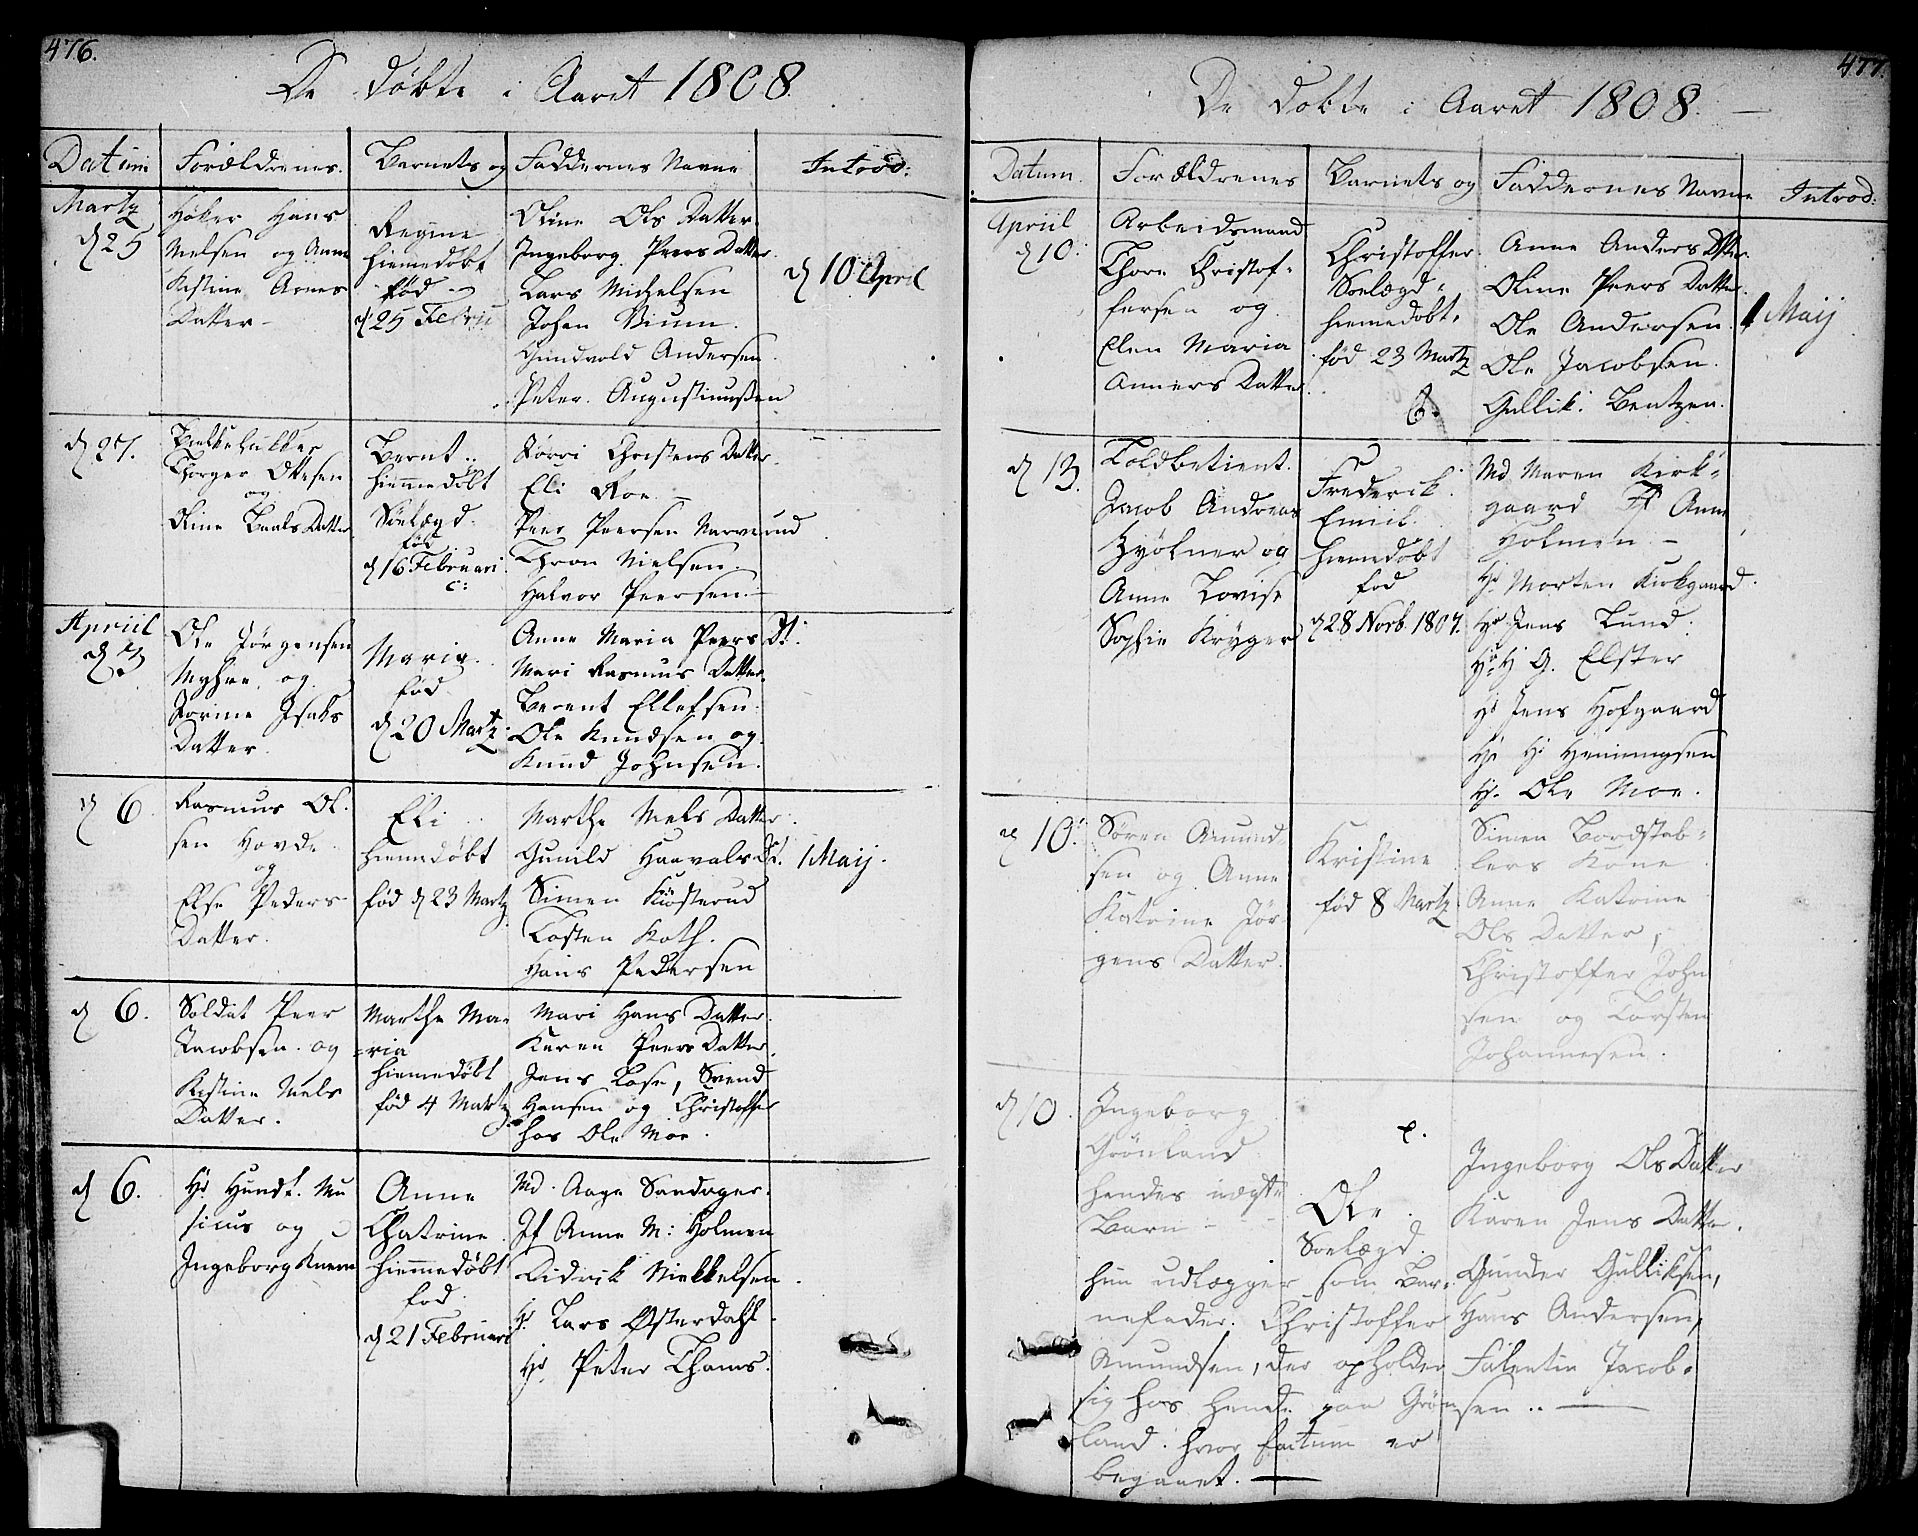 476.
De døbte i Aaret 1808.
Datum Forældrenes. Barnets og Faddernes Navne Introd:
Martz
d 25
Høker Hans
Nielsen og Anne
Kistine Arnes
Datter
Regine
hiemedøbt
fød
d 25 Febru
Oline Ols Datter
Ingeborg Peers Datter.
Lars Michelsen
Johan Bium.
Gundvold Andersen.
Peter Augustinusßen
d 10 April
d 27.
Thorger Olsen
og
Oline Datter
Bernt
hiemmedøbt
Søelægd.
fød
d 16 Februari
c:
Jørri Christens Datter.
Eli Roe.
Peer Peersen Narverud
Thron Nielsen.
Halvor Peersen.
Apriil
d 3
Ole Jørgensen
Myhre og
Jorine Isaks
Datter.
Maria.
fød
d 20 Martz
Anne Maria Peers Dt.
Mari Rasmus Datter.
Berent Ellefsen.
Ole Knudsen og
Knud Johnsen.
d 6
Rasmus Ol.
sen Hovde
og
Else Peders
Datter.
Eli
hiemedøbt
fød d 23 Martz
Marthe Niels Datter.
Gunild Haavals Dt.
Simen Kiøsterud
Tosten Koth.
Hans Pedersen
1 Maij.
d 6.
Soldat Peer
Jacobsen og
Kistine Niels
Datter.
Marthe Ma=
=ria
hiemedøbt
fød 4 Martz
Mari Hans Datter.
Karen Peers Datter
Jens Lose, Svend
Hansen og Christoffer
hos Ole Moe.
d 6.
Hr Hundt. Mu
sicus og
Ingeborg
Anne
Chatrine
hiemmedøbt
fød.
d 21 Februari
Md. Aage Sandager.
Jf Anne M: Holmen
Didrik Niekkelsen.
Hr Lars Østerdahl.
Hr. Peter Thams.
477.
De døbte i Aaret 1808.
Datum. Forældrenes Barnets og Faddernes Navne Introd:
Apriil
d 10.
Arbeidsmand
Thore Christof=
fersen og
Elen Maria
Anners Datter
Christoffer
Søelægd.
hiemedøbt.
fød 23 Martz
6.
Anne Anders Dtter.
Oline Peers Datter.
Ole Andersen.
Ole Jacobsen.
Gullik. Bentzen.
1 Maij
d 13.
Toldbetient.
Jacob Andreas
Hyølner og
Anne Lovise
Sophie Kryger
Frederik.
Emiil.
hiemedøbt
fød
d 28 Novb. 1807.
Md Maren Kirk=
gaard Jf Anne
Holmen
Hr. Morten Kirkgaard.
Hr Jens Lund.
Hr H G. Elster
Hr Jens Hofgaard
Hr Hr Henningsen
Hr. Ole Moe.
d 10.
Søren Amund=
sen og Anne
Katrine Jør
gens Datter.
Kristine
fød 8 Martz
Simen Bordstab=
lers Kone
Anne Katrine
Ols Datter,
Christoffer John
sen og Torsten
Johannesen.
d 10.
Ingeborg
Grønland
hendes uægte
Barn
e.
Ole.
Søelægd.
hun udlægger som Bar=
nefader. Christoffer
Amundsen, der opholder
sig hos hende paa Grøn
land. hvor factum er
begaaet.
Ingeborg Ols Datter
Karen Jens Datter.
Gunder Gulliksen,
Hans Andersen,
Falentin Jacob=
sen